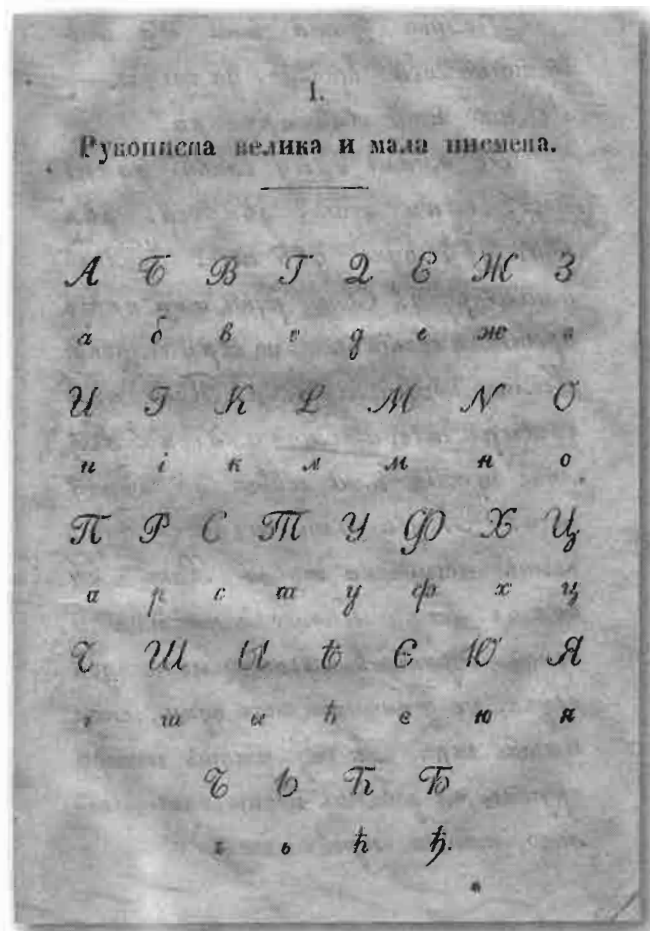 I.
Рукописна велика и мала писмена.
А Б В Г Д Е Ж З
а б в г д е ж з
И І К L М N О
и і к л м н о
П Р С Т У Ф Х Ц
п р с т у ф х ц
Ч Ш Ы Ѣ Є Ю Я
ч ш ы ѣ є ю я
Ъ Ь Ћ Ђ
ъ ь ћ ђ.